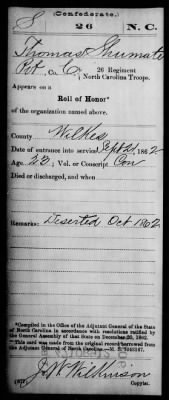 (Confederate.)
S 26 N. C.
Thomas Shumate
Pvt, Co. C, 26 Regiment
North Carolina Troops.
Appears on a
Roll of Honor*
of the organization named above.
County Wilkes
Date of entrance into service Sept 21, 1862
Age 23; Vol. or Conscript Con
Died or discharged, and when
Remarks: Deserted Oct 1862
*Compiled in the Office of the Adjutant General of the State
of North Carolina in accordance with resolutions ratified by
the General Assembly of that State on December 20, 1862.
†This card was made from the original record borrowed from
the Adjutant General of North Carolina
J. W. Wilkinson
Copyist.